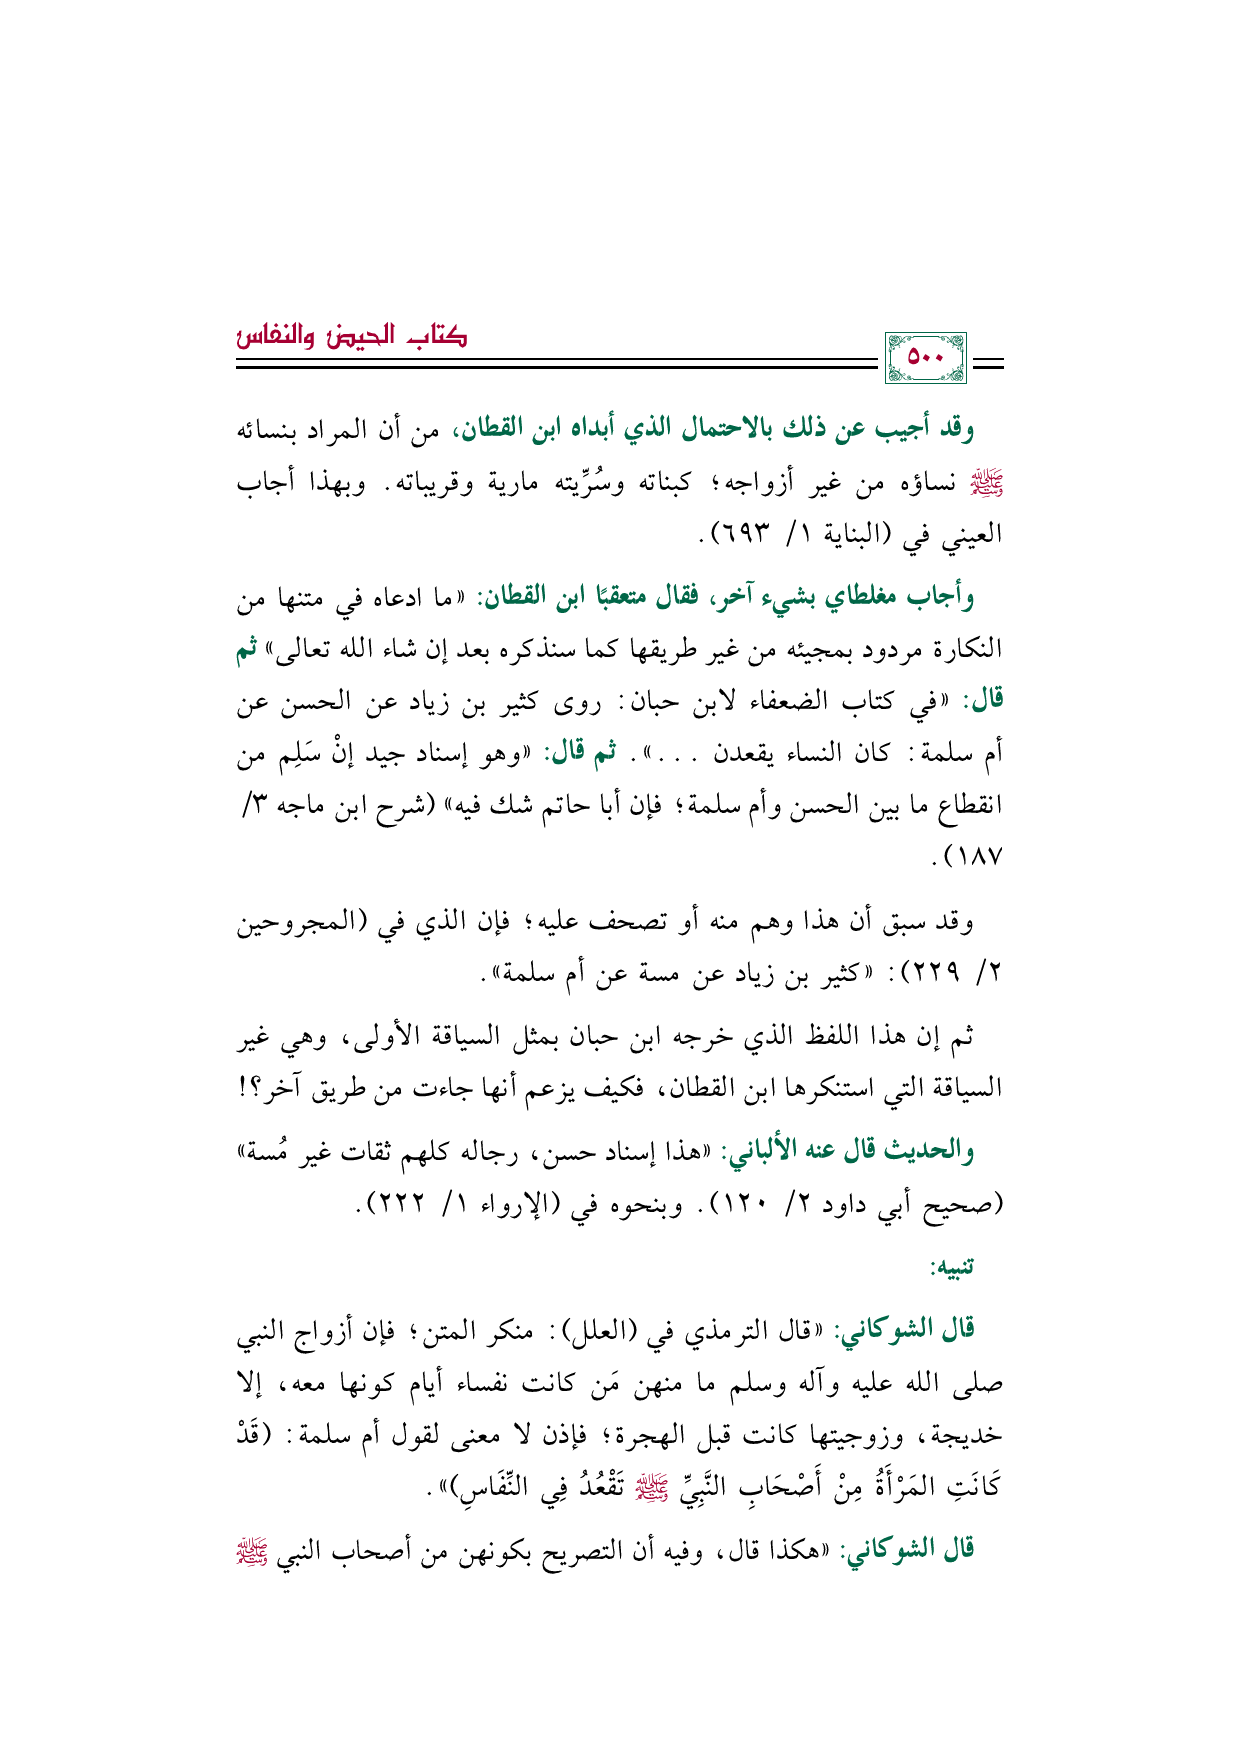 كتاب الحيض والنفاس
٥٠٠
وقد أجيب عن ذلك بالاحتمال الذي أبداه ابن القطان، من أن المراد بنسائه
ﷺ نساؤه من غير أزواجه؛ كبناته وسُرِّيته مارية وقريباته. وبهذا أجاب
العيني في (البناية ١/ ٦٩٣).
وأجاب مغلطاي بشيء آخر، فقال متعقبًا ابن القطان: «ما ادعاه في متنها من
النكارة مردود بمجيئه من غير طريقها كما سنذكره بعد إن شاء الله تعالى» ثم
قال: «في كتاب الضعفاء لابن حبان: روى كثير بن زياد عن الحسن عن
أم سلمة: كان النساء يقعدن ...». ثم قال: «وهو إسناد جيد إنْ سَلِم من
انقطاع ما بين الحسن وأم سلمة؛ فإن أبا حاتم شك فيه» (شرح ابن ماجه ٣/
١٨٧).
وقد سبق أن هذا وهم منه أو تصحف عليه؛ فإن الذي في (المجروحين
٢/ ٢٢٩): «كثير بن زياد عن مسة عن أم سلمة».
ثم إن هذا اللفظ الذي خرجه ابن حبان بمثل السياقة الأولى، وهي غير
السياقة التي استنكرها ابن القطان، فكيف يزعم أنها جاءت من طريق آخر؟!
والحديث قال عنه الألباني: «هذا إسناد حسن، رجاله كلهم ثقات غير مُسة»
(صحيح أبي داود ٢/ ١٢٠). وبنحوه في (الإرواء ١/ ٢٢٢).
تنبيه:
قال الشوكاني: «قال الترمذي في (العلل): منكر المتن؛ فإن أزواج النبي
صلى الله عليه وآله وسلم ما منهن مَن كانت نفساء أيام كونها معه، إلا
خديجة، وزوجيتها كانت قبل الهجرة؛ فإذن لا معنى لقول أم سلمة: (قَدْ
كَانَتِ المَرْأَةُ مِنْ أَصْحَابِ النَّبِيِّ ﷺ تَقْعُدُ فِي النِّفَاسِ)».
قال الشوكاني: «هكذا قال، وفيه أن التصريح بكونهن من أصحاب النبي ﷺ